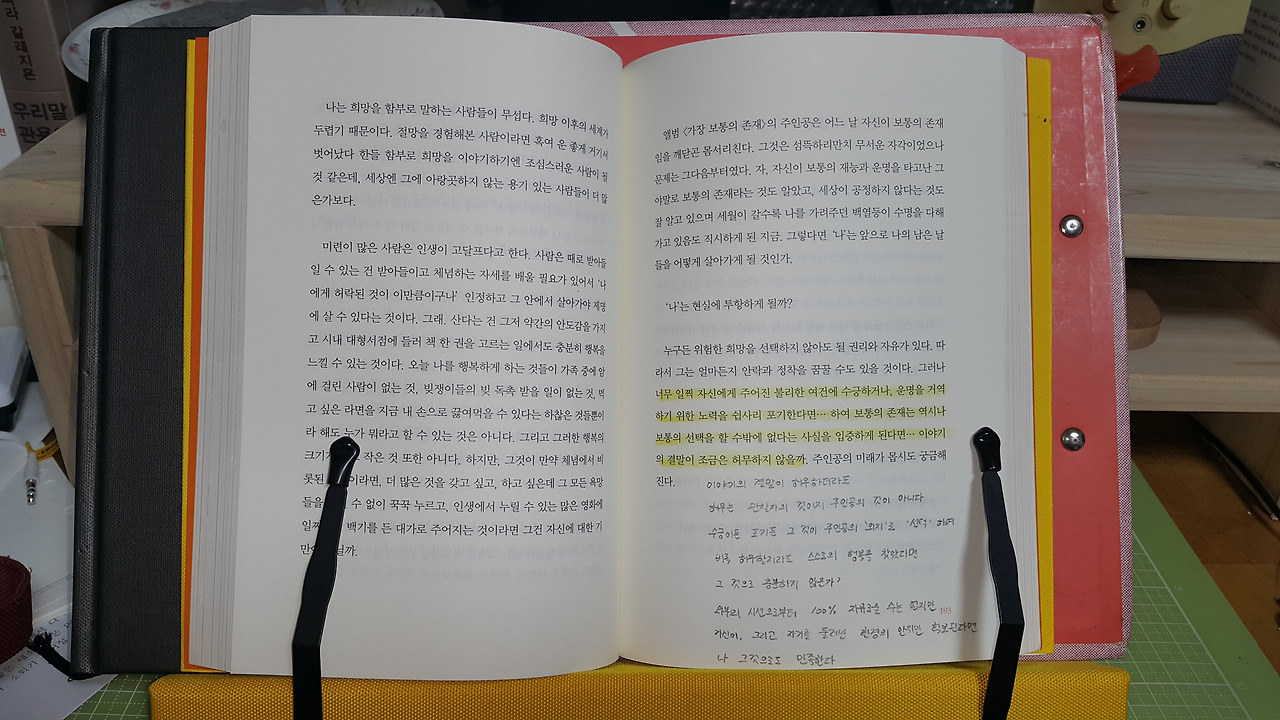 라 갈래지은
우리말
관용
나는 희망을 함부로 말하는 사람들이 무섭다. 희망 이후의 세계가
두렵기 때문이다. 절망을 경험해본 사람이라면 혹여 운 좋게 거기서
벗어났다 한들 함부로 희망을 이야기하기엔 조심스러운 사람이 될
것 같은데, 세상엔 그에 아랑곳하지 않는 용기 있는 사람들이 더 많
은가보다.
미련이 많은 사람은 인생이 고달프다고 한다. 사람은 때로 받아들
일 수 있는 건 받아들이고 체념하는 자세를 배울 필요가 있어서 '나
에게 허락된 것이 이만큼이구나' 인정하고 그 안에서 살아가야 제명
에 살 수 있다는 것이다. 그래. 산다는 건 그저 약간의 안도감을 가지
고 시내 대형서점에 들러 책 한 권을 고르는 일에서도 충분히 행복을
느낄 수 있는 것이다. 오늘 나를 행복하게 하는 것들이 가족 중에 암
에 걸린 사람이 없는 것, 빚쟁이들의 빚 독촉 받을 일이 없는 것, 먹
고 싶은 라면을 지금 내 손으로 끓여먹을 수 있다는 하찮은 것들뿐이
라 해도 누가 뭐라고 할 수 있는 것은 아니다. 그리고 그러한 행복의
크기가 작은 것 또한 아니다. 하지만, 그것이 만약 체념에서 비
롯된 이라면, 더 많은 것을 갖고 싶고, 하고 싶은데 그 모든 욕망
들을 수 없이 꾹꾹 누르고, 인생에서 누릴 수 있는 많은 영화에
일찌 백기를 든 대가로 주어지는 것이라면 그건 자신에 대한 기
만 일까.
앨범 〈가장 보통의 존재〉의 주인공은 어느 날 자신이 보통의 존재
임을 깨닫곤 몸서리친다. 그것은 섬뜩하리만치 무서운 자각이었으나
문제는 그다음부터였다. 자, 자신이 보통의 재능과 운명을 타고난 그
야말로 보통의 존재라는 것도 알았고, 세상이 공정하지 않다는 것도
잘 알고 있으며 세월이 갈수록 나를 가려주던 백열등이 수명을 다해
가고 있음도 직시하게 된 지금. 그렇다면 '나'는 앞으로 나의 남은 날
들을 어떻게 살아가게 될 것인가.
'나'는 현실에 투항하게 될까?
누구든 위험한 희망을 선택하지 않아도 될 권리와 자유가 있다. 따
라서 그는 얼마든지 안락과 정착을 꿈꿀 수도 있을 것이다. 그러나
너무 일찍 자신에게 주어진 불리한 여건에 수긍하거나, 운명을 거역
하기 위한 노력을 쉽사리 포기한다면… 하여 보통의 존재는 역시나
보통의 선택을 할 수밖에 없다는 사실을 입증하게 된다면… 이야기
의 결말이 조금은 허무하지 않을까. 주인공의 미래가 몹시도 궁금해
진다.
이야기의 결말이 허무하더라도
허무는 관찰자의 것이지 주인공의 것이 아니다
수긍이든 포기든 그 것이 주인공의 '의지'로 '선택' 하여
비록 허무할지라도 스스로의 행복을 찾았다면
그 것으로 충분하지 않은가?
외부의 시선으로부터 100% 자유로울 수는 없지만
193
자신이, 그리고 자기를 둘러싼 환경의 안위만 확보된다면
나 그것으로도 만족한다